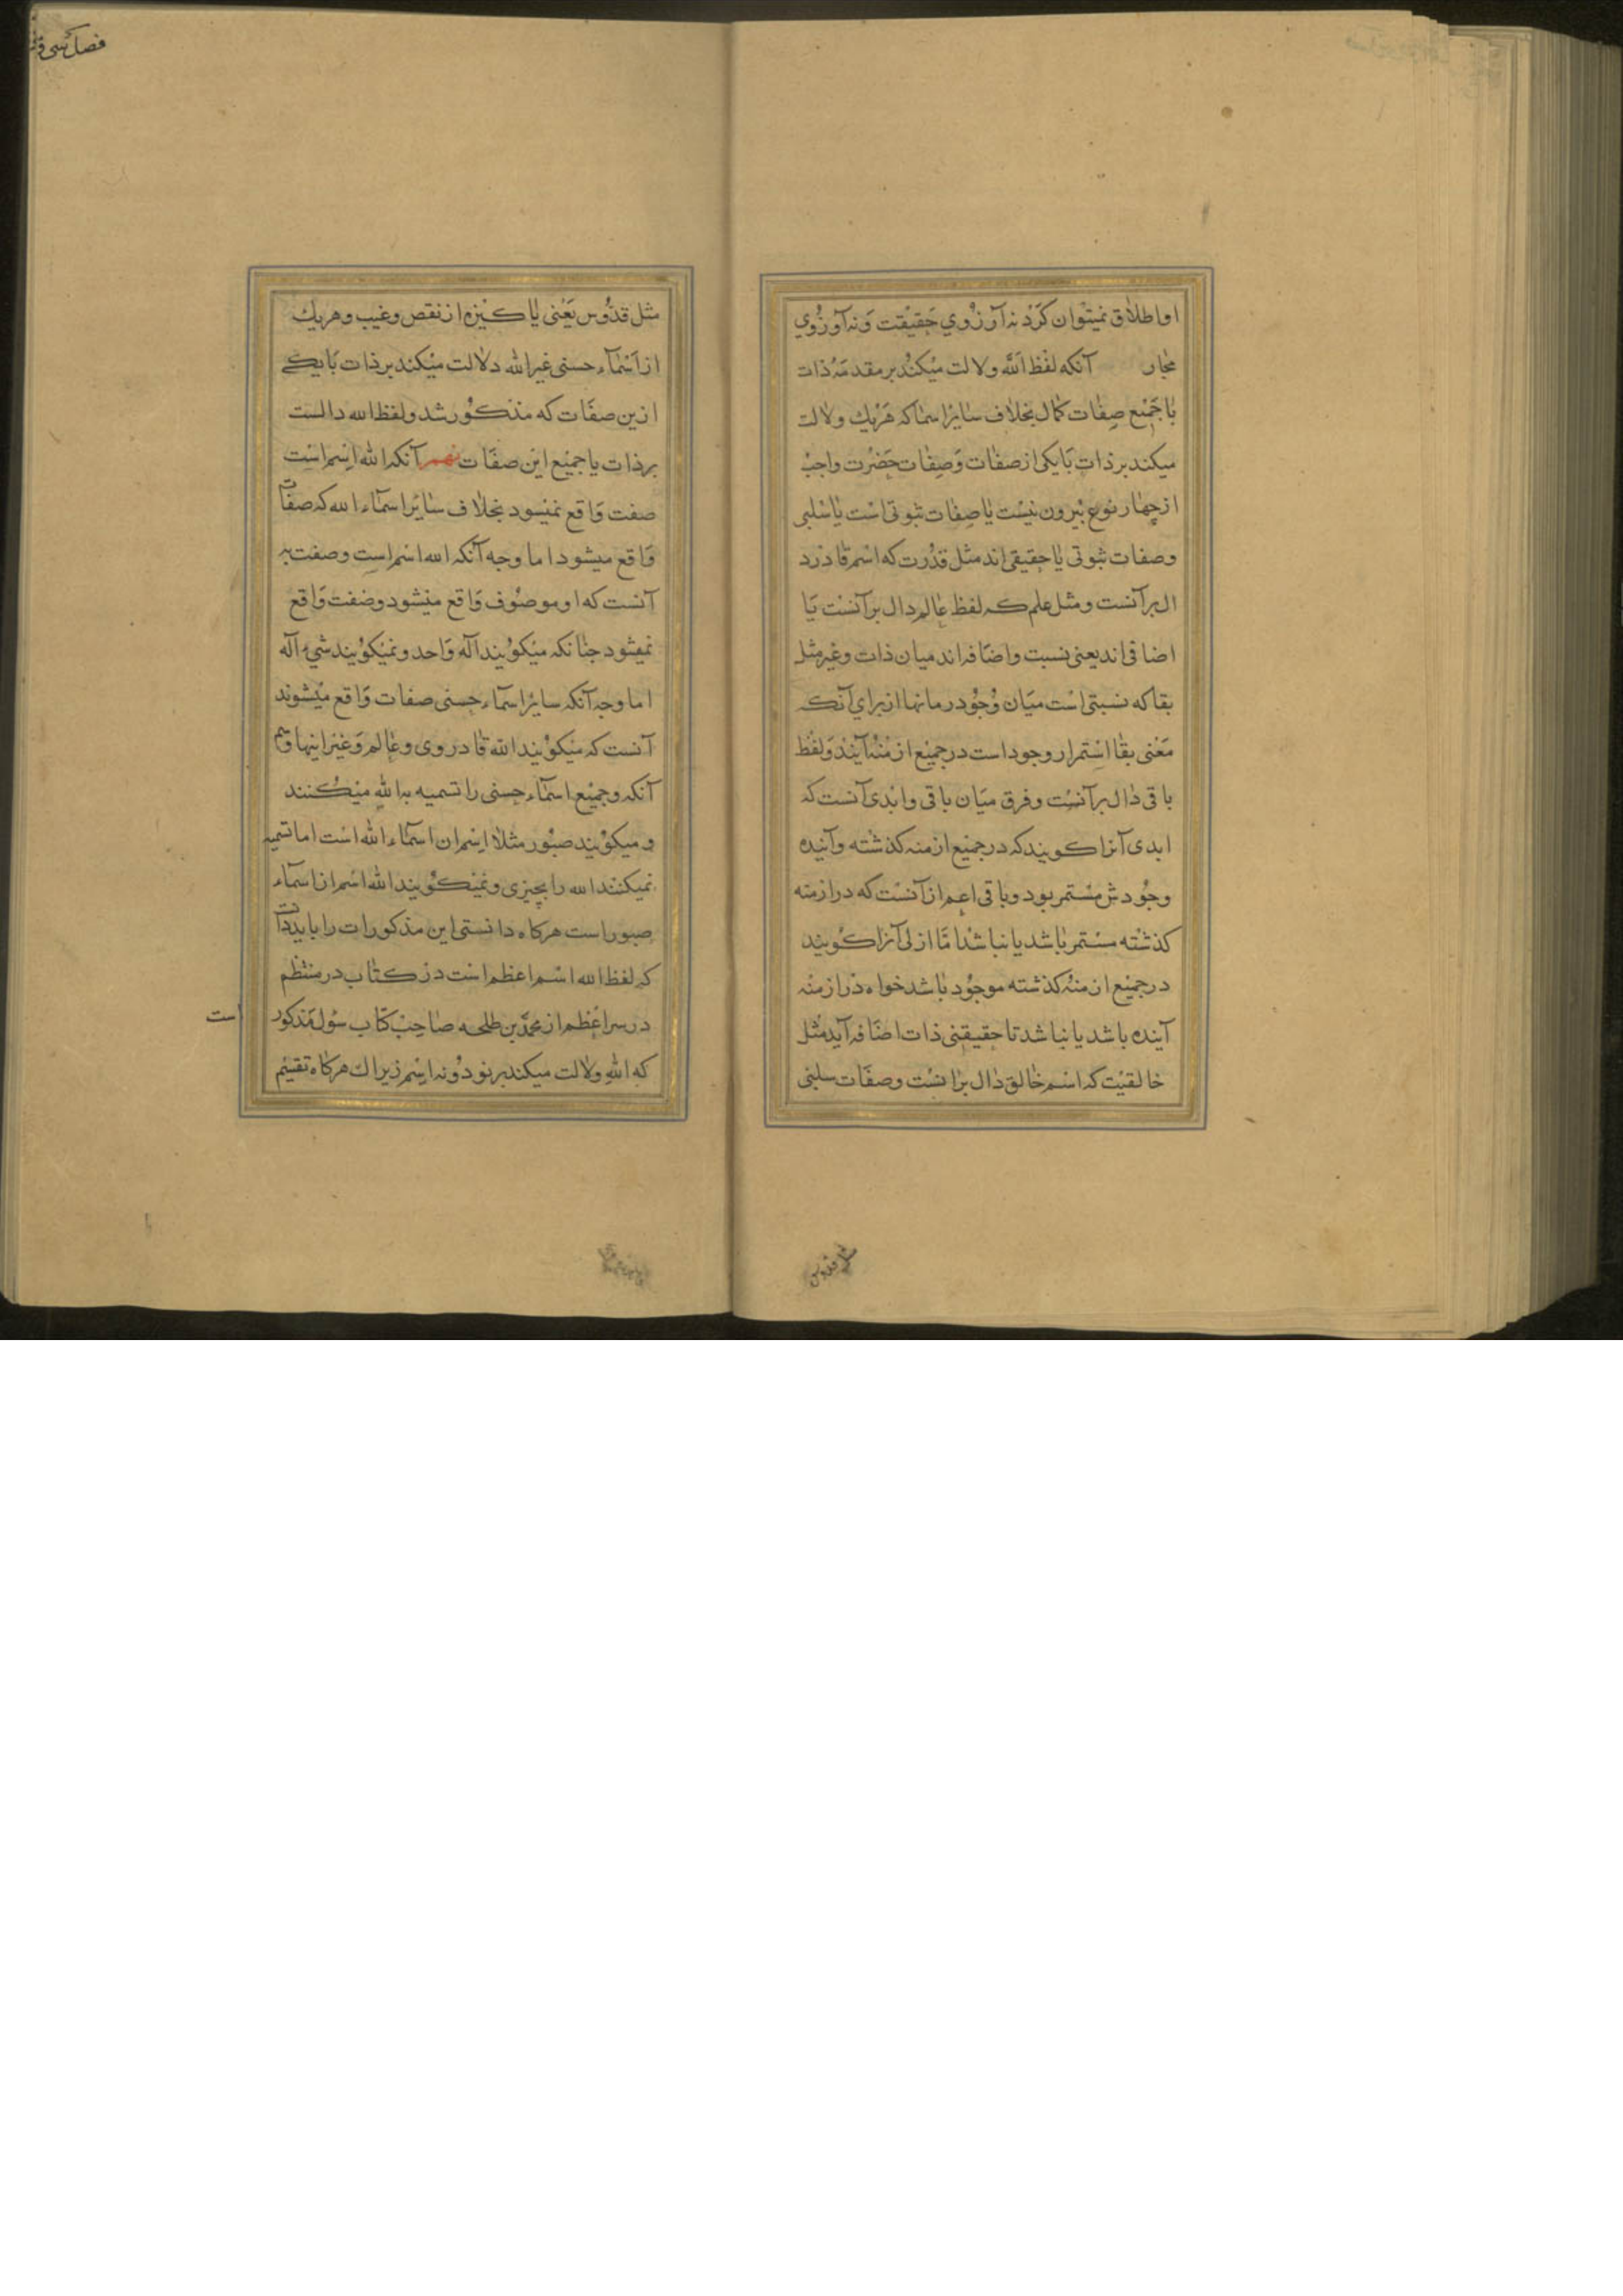 او اطلاق نمیتوان کرد نه از روی حقیقت و نه از روی
مجار آنکه لفظ الله ولالت میکند بر مقدمه ذات
با جمیع صفات کمال بخلاف سایر اسما که هریك ولالت
میکند بر ذات با یکی از صفات و صفات حضرت واجب
از چهار نوع بیرون نیست یا صفات ثبوتی است یا سلبی
وصفات ثبوتی یا حقیقی اند مثل قدرت که اسم قادر د
ال بر آنست و مثل علم که لفظ عالم دال بر آنست یا
اضافی اند یعنی نسبت واضافه اند میان ذات وغیر مثل
بقا که نسبتی است میان وجود رمانها از برای آنکه
معنی بقا استمرار وجود است در جمیع ازمنه آینده ولفظ
باقی دال بر آنست وفرق میان باقی وابدی آنست که
ابدی آنرا کویند که در جمیع ازمنه کذشته وآینده
وجودش مستمر بود وباقی اعم از آنست که در ازمنه
کذشته مستمر باشد یا نباشد اما ازلی آنرا کویند
در جمیع ازمنه کذشته موجود باشد خواه در ازمنه
آینده باشد یا نباشد تا حقیقتی ذات اضافه آید مثل
خالقیت که اسم خالق دال برانست وصفات سلبی
قدوس
فصل سی و
مثل قدوس یعنی پاکیزه از نقص وعیب وهریك
از اسماء حسنی غیر الله دلالت میکند بر ذات با یکے
ازین صفات که مذکور شد ولفظ الله دالست
بر ذات یا جمیع این صفات نهم آنکه الله اسم است
صفت واقع نمیسود بخلاف سایر اسماء الله که صفات
واقع میشود اما وجه آنکه الله اسم است وصفت نه
آنست که او موصوف واقع میشود وصفت واقع
نمیشود جنانکه میکویند اله واحد ونمیکویند شیء اله
اما وجه آنکه سایر اسماء حسنی صفات واقع میشوند
آنست که میکویند الله قادر وی وعالم وغیر اینها
آنکه وجمیع اسماء حسنی را تسمیه به الله میکنند
ومیکویند صبور مثلا اسم از اسماء الله است اما تسمیه
نمیکنند الله را بچیزی ونمیکویند الله اسم از اسماء
صبور است هرکاه دانستی این مذکورات را باید
که لفظ الله اسم اعظم است در کتاب در منتظم
در سر اعظم از محمد بن طلحه صاحب کتاب سول مذکور است
که الله ولالت میکند بر نود ونه اسم زیراك هرکاه تقسیم